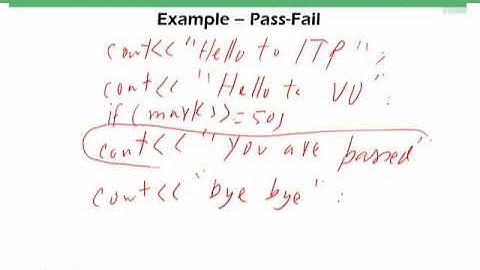 Example – Pass-Fail
cout<< "Hello to ITP";
cout<< "Hello to VU":
if (marks)>=50)
cout<< "you are passed"
cout<< "bye bye":